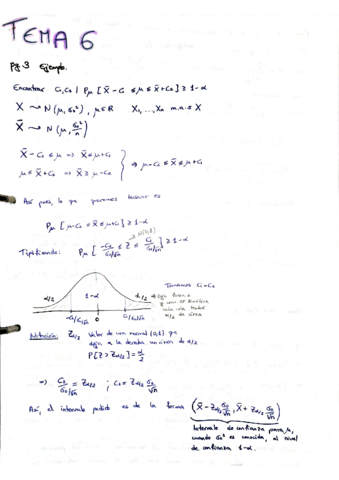 TEMA 6
pg 3 Ejemplo.
Encontrar C₁, C₂ / Pμ [X̄ - C₁ ≤ μ ≤ X̄ + C₂] ≥ 1-α
X ~ N(μ, σ₀²), μ∈R X₁, ..., Xn m.a.s X
X̄ ~ N(μ, σ₀²/n)
X̄ - C₁ ≤ μ ⇒ X̄ ≤ μ+C₁
μ ≤ X̄ + C₂ ⇒ X̄ ≥ μ-C₂
⇒ μ-C₂ ≤ X̄ ≤ μ+C₁
Así pues, lo que queremos buscar es
Pμ [μ-C₂ ≤ X̄ ≤ μ+C₁] ≥ 1-α
N(0,1)
Tipificando: Pμ [-C₂/(σ₀/√n) ≤ Z ≤ C₁/(σ₀/√n)] ≥ 1-α
Tomamos C₁=C₂
α/2 1-α α/2
-C₂/σ₀/√n 0 C₁/σ₀/√n
Notación: Z_{α/2} valor de una normal (0,1) que
deja a la derecha un área de α/2
P[Z > Z_{α/2}] = α/2
⇒ C₂/(σ₀/√n) = Z_{α/2} ; C₂ = Z_{α/2} σ₀/√n
Así, el intervalo pedido es de la forma (X̄ - Z_{α/2} σ₀/√n, X̄ + Z_{α/2} σ₀/√n)
Intervalo de confianza para μ,
cuando σ₀² es conocida, al nivel
de confianza 1-α.